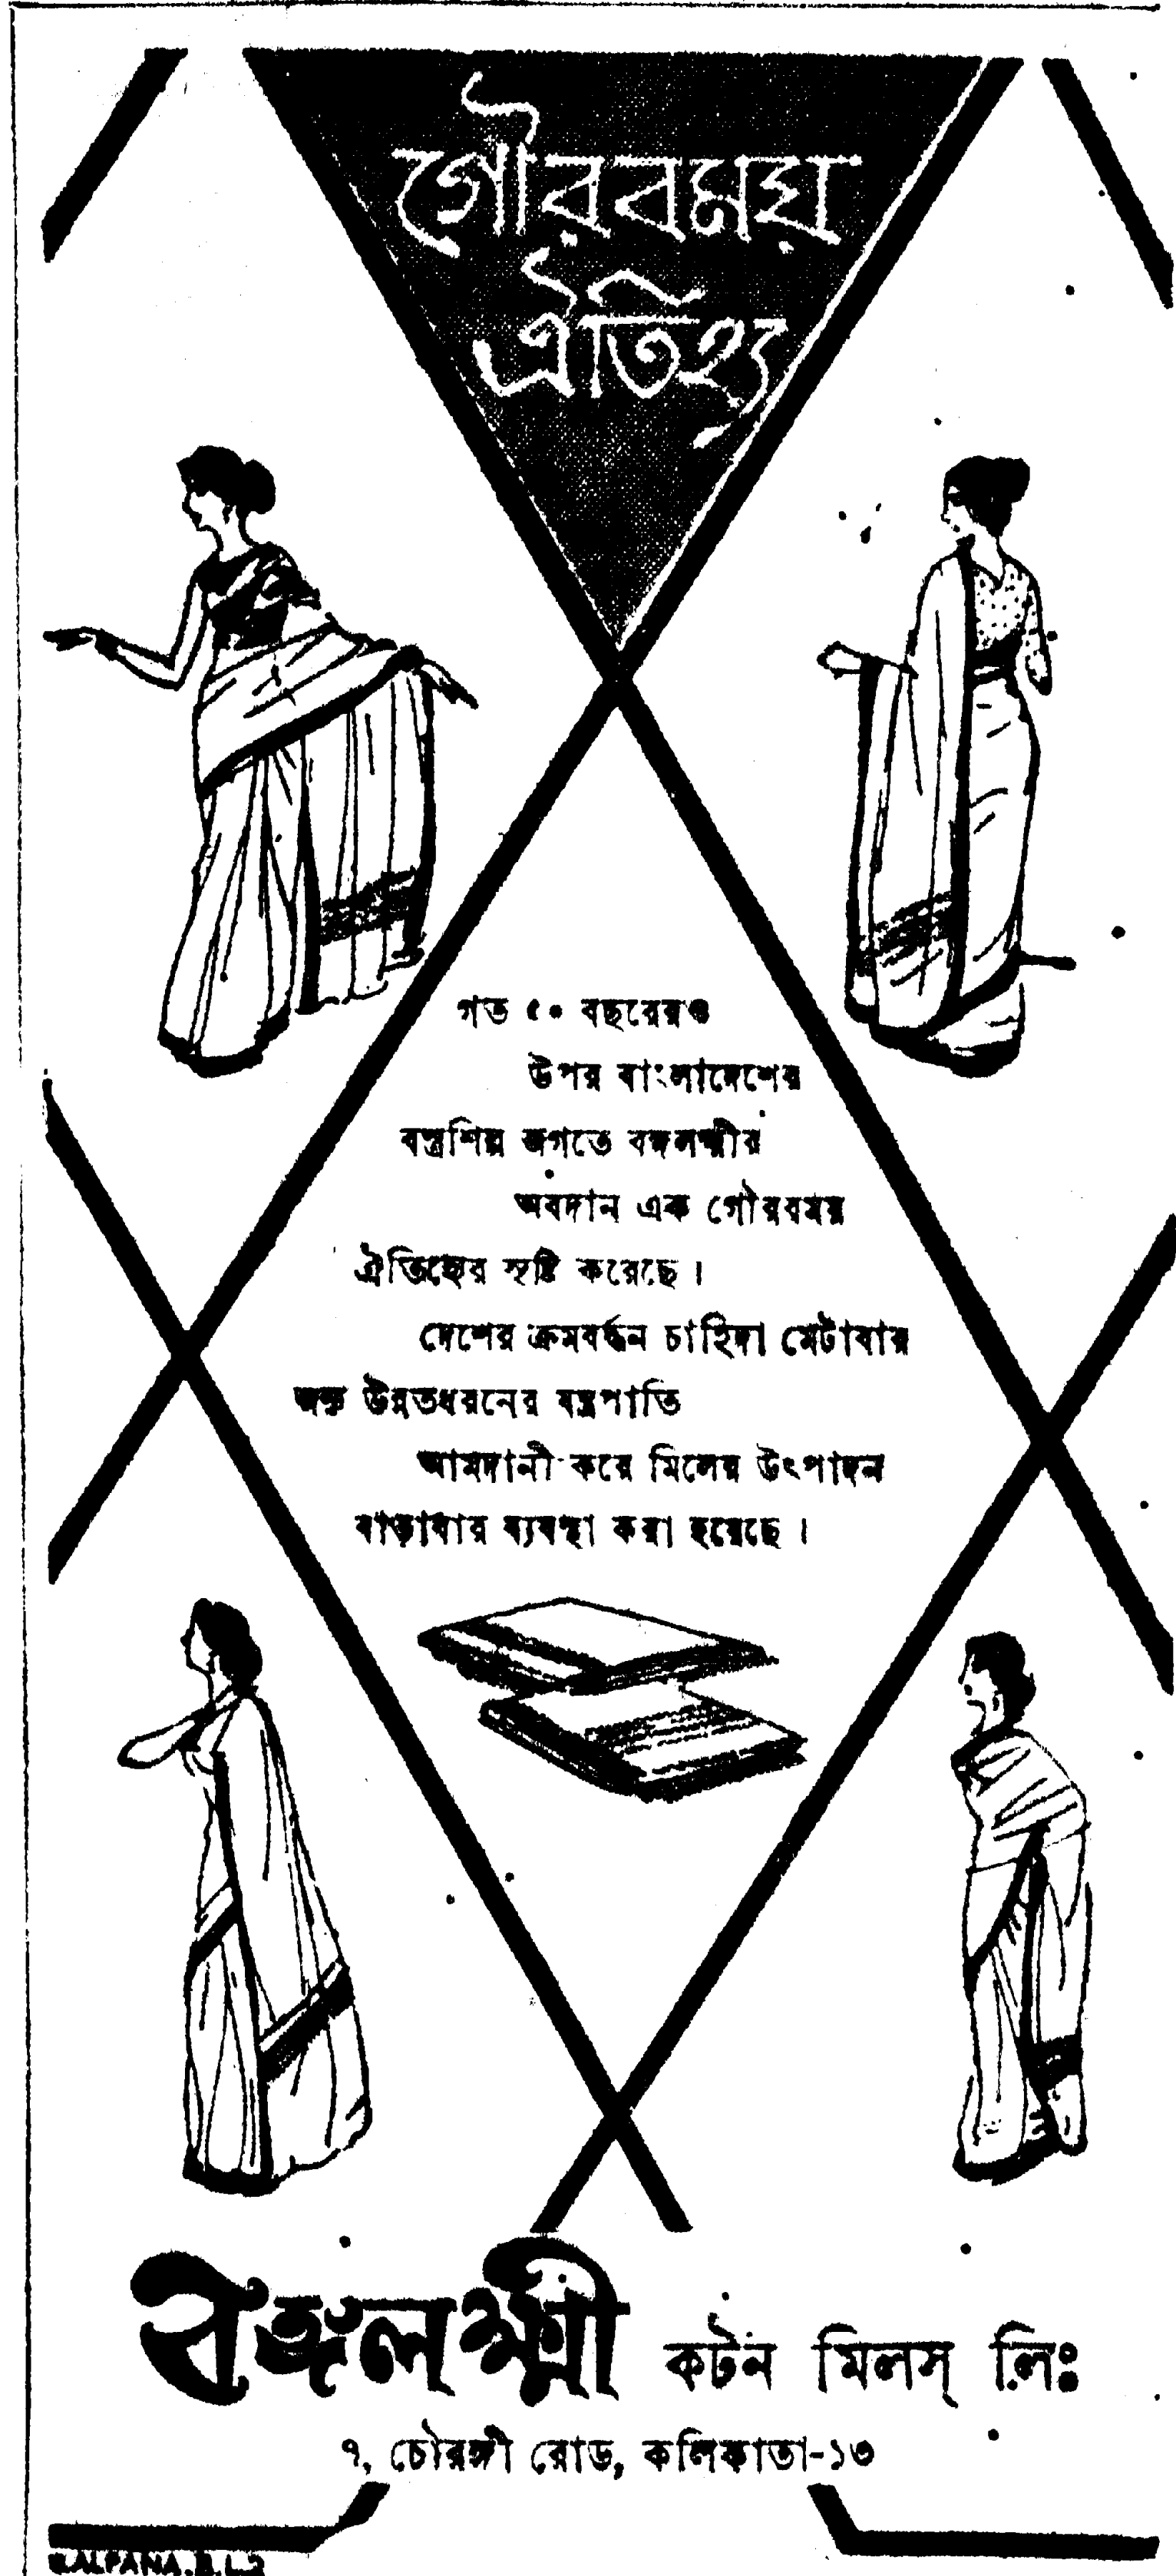 গৌরবময়
ঐতিহ্য
গত ৫০ বছরেরও
উপর বাংলাদেশের
বস্ত্রশিল্প জগতে বঙ্গলক্ষ্মীর
অবদান এক গৌরবময়
ঐতিহ্যের সৃষ্টি করেছে ।
দেশের ক্রমবর্দ্ধন চাহিদা মেটাবার
জন্য উন্নতধরনের যন্ত্রপাতি
আমদানী করে মিলের উৎপাদন
বাড়াবার ব্যবস্থা করা হয়েছে ।
বঙ্গলক্ষ্মী কটন মিলস্ লিঃ
৭, চৌরঙ্গী রোড, কলিকাতা-১৩
KALPANA.B.L.2